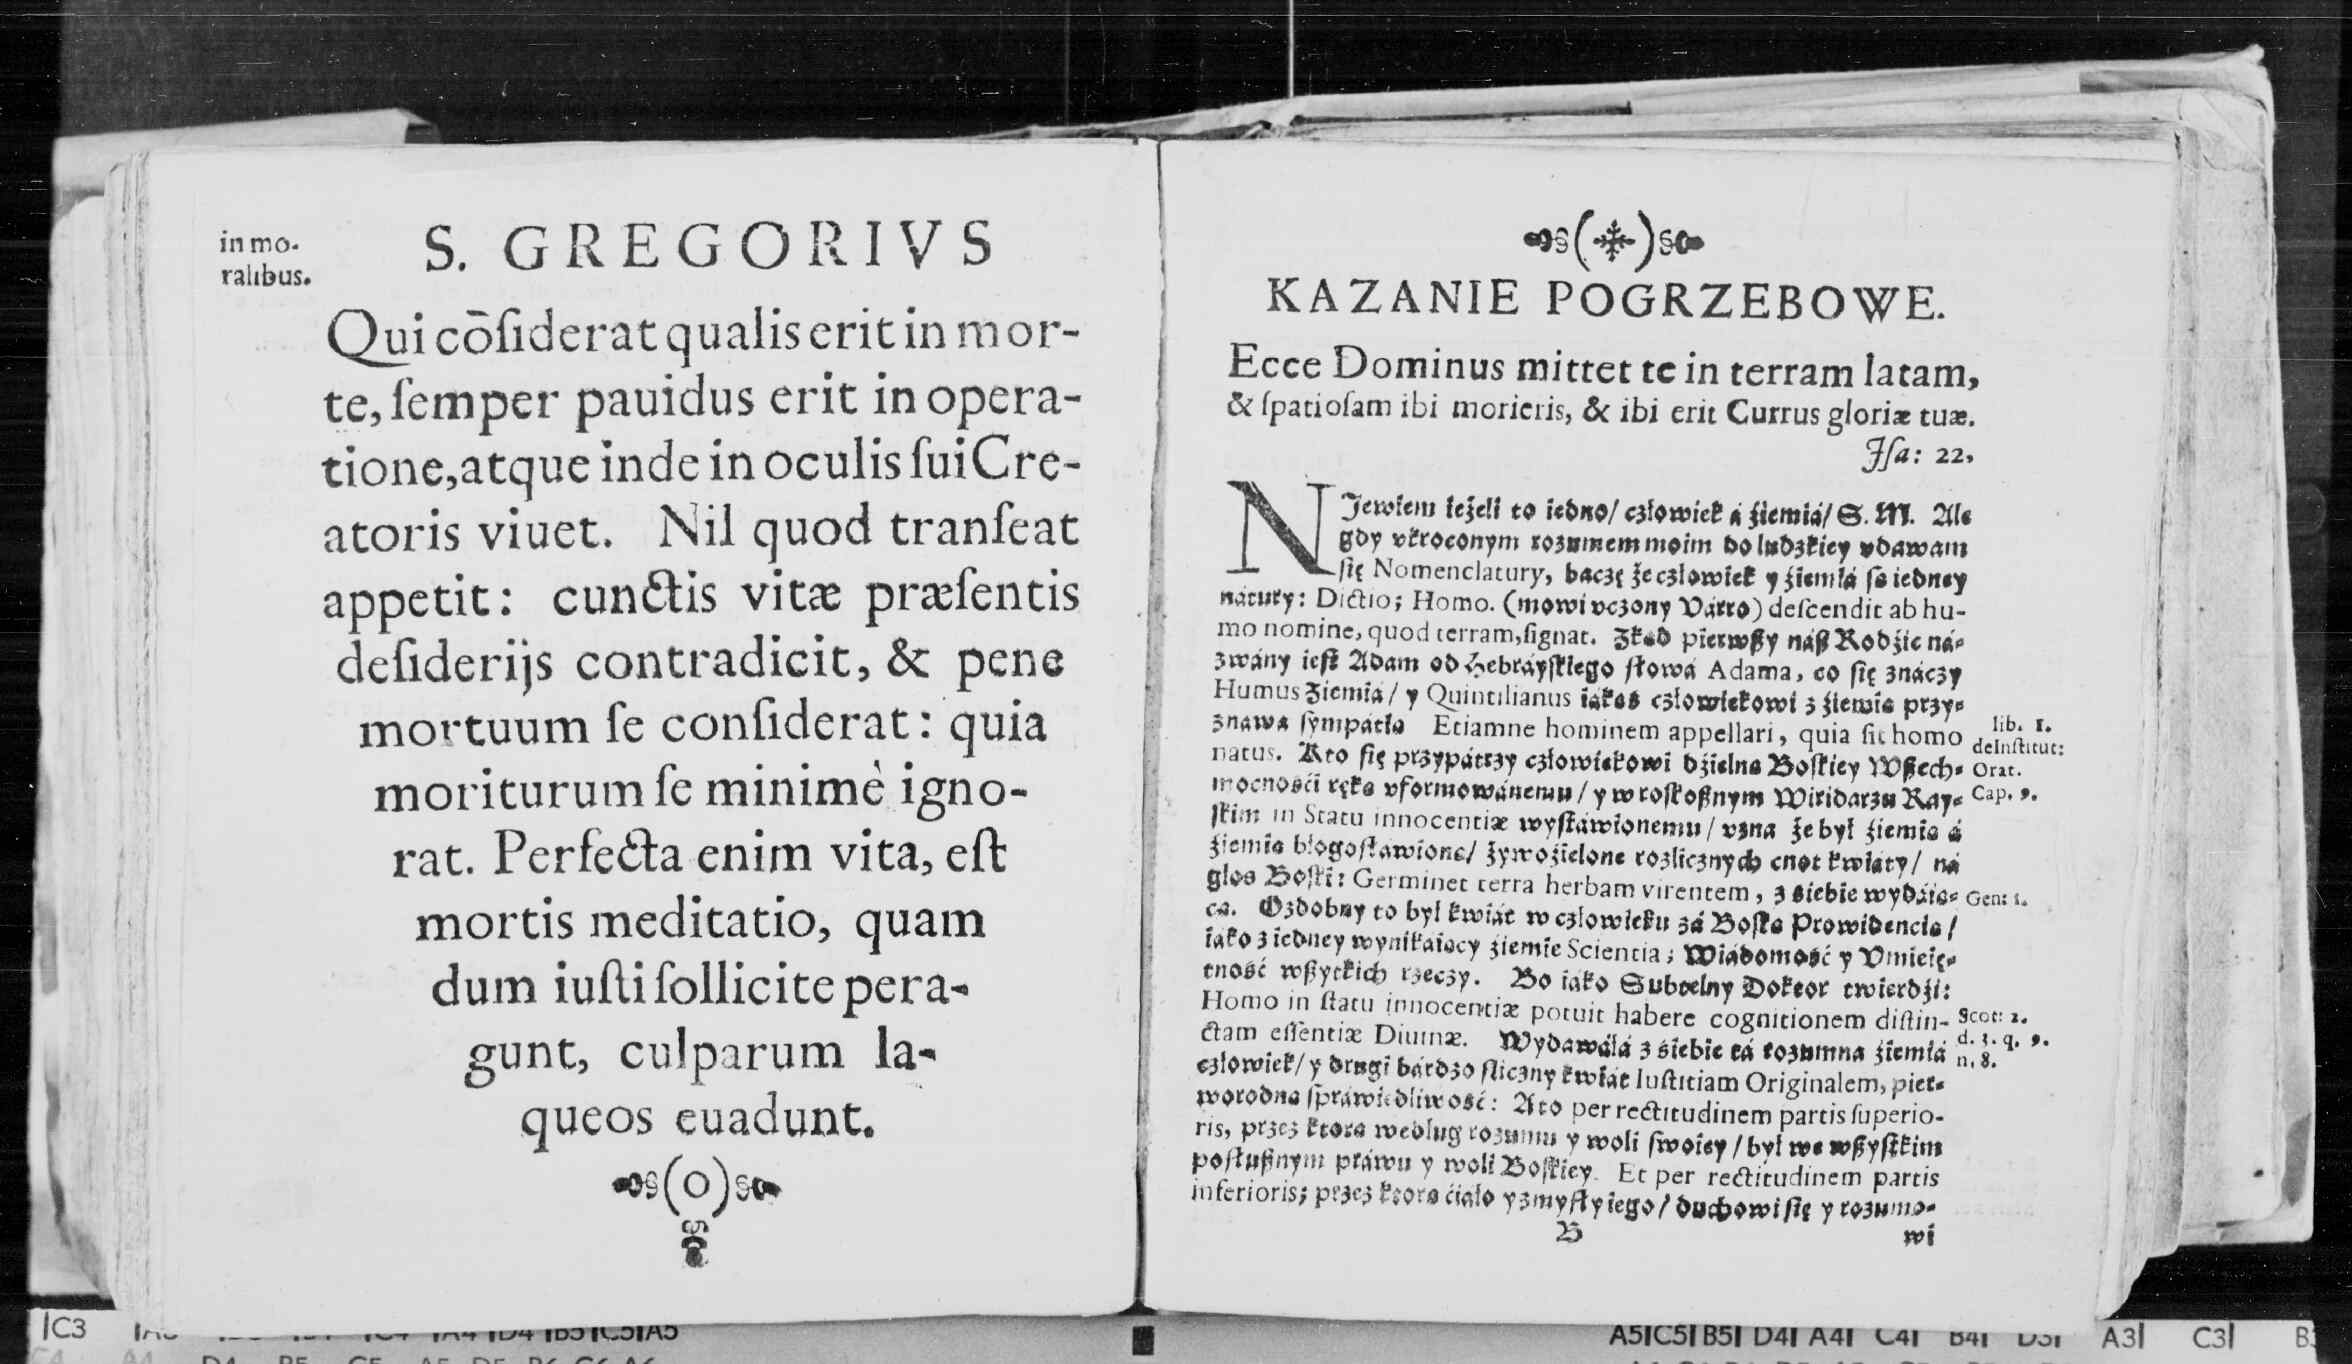 in mo-
ralibus.
S. GREGORIVS
Qui cōſiderat qualis erit in mor-
te, ſemper pauidus erit in opera-
tione, atque inde in oculis ſui Cre-
atoris viuet. Nil quod tranſeat
appetit: cunctis vitæ præſentis
deſiderijs contradicit, & pene
mortuum ſe conſiderat: quia
moriturum ſe minimè igno-
rat. Perfecta enim vita, eſt
mortis meditatio, quam
dum iuſti ſollicite pera-
gunt, culparum la-
queos euadunt.
(O)
KAZANIE POGRZEBOWE.
Ecce Dominus mittet te in terram latam,
& ſpatioſam ibi morieris, & ibi erit Currus gloriæ tuæ.
Iſa: 22,
NJewiem ieżeli to iedno/ człowiek á źiemiá/ S. M. Ale
gdy vkroconym rozumem moim do ludzkiey vdawam
się Nomenclatury, baczę że człowiek y źiemiá są iedney
nátury: Dictio; Homo. (mowi vczony Várro) deſcendit ab hu-
mo nomine, quod terram, ſignat. Zkąd pierwßy náß Rodźic ná-
zwány ieſt Adam od Hebráyſkiego ſłowá Adama, co ſię znáczy
Humus Ziemiá/ y Quintilianus iákąś człowiekowi z źiemią przy-
znawa ſympátią Etiamne hominem appellari, quia ſit homo
natus. Kto ſię przypátrzy człowiekowi dźielną Boſkiey Wßech-
mocnośći ręką vformowánemu/ y w roſkoßnym Wiridarzu Ray-
ſkim in Statu innocentiæ wyſtáwionemu/ vzna że był źiemią á
źiemią błogoſłáwioną/ żywoźielone rozlicznych cnot kwiáty/ ná
głos Boſki: Germinet terra herbam virentem, z siebie wydáią-
cą. Ozdobny to był kwiát w człowieku zá Boſką Prowidencią/
iáko z iedney wynikáiący źiemie Scientia; Wiádomość y Vmieię-
tność wßytkich rzeczy. Bo iáko Subtelny Doktor twierdźi:
Homo in ſtatu innocentiæ potuit habere cognitionem diſtin-
ctam eſſentiæ Diuinæ. Wydawáłá z śiebie tá rozumna źiemiá
człowiek/ y drugi bárdzo ſliczny kwiát Iuſtitiam Originalem, pier-
worodną ſpráwiedliwość: A to per rectitudinem partis ſuperio-
ris, przez ktorą według rozumu y woli ſwoiey/ był we wßyſtkim
poſłußnym práwu y woli Boſkiey. Et per rectitudinem partis
inferioris; przez ktorą ćiáło y zmyſły iego/ duchowi ſię y rozumo-
lib. 1.
de Inſtitut:
Orat.
Cap. 9.
Gen: 1.
Scot: 2.
d. 3. q. 9.
n. 8.
B
wi
|C3
|B5|C5|A5
A5|C5|B5| D4| A4| C4| B4| D3| A3| C3|